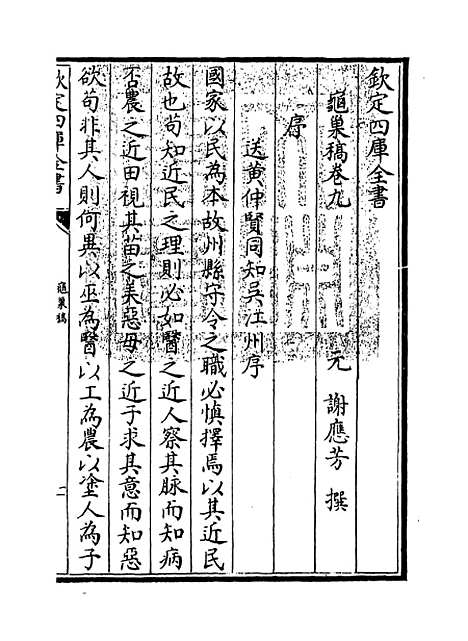 欽定四庫全書
龜巢稿卷九
元　謝應芳　撰
序
送黄仲賢同知吳江州序
國家以民為本故州縣守令之職必慎擇焉以其近民
故也苟知近民之理則必如醫之近人察其脉而知病
否農之近田視其苗之美惡母之近子求其意而知惡
欲苟非其人則何異以巫為醫以工為農以塗人為子
欽定四庫全書
龜巢稿